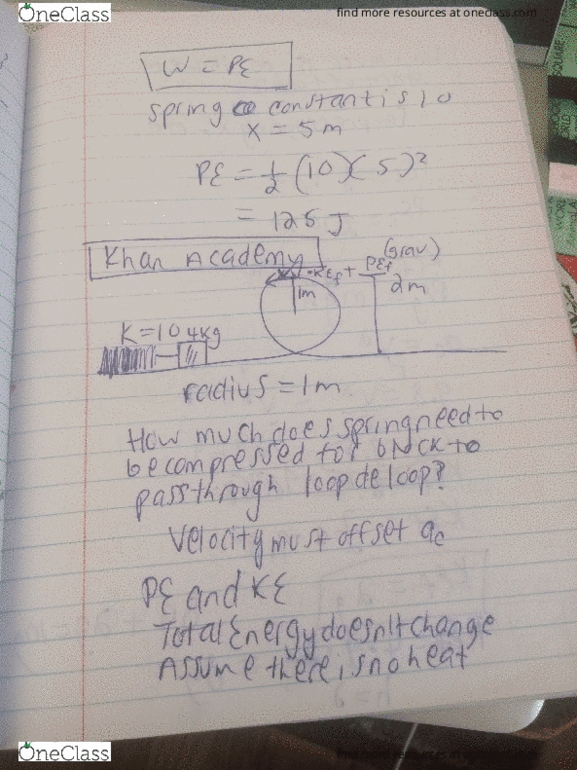 OneClass
find more resources at oneclass.com
W = PE
spring constant is 10
x = 5m
PE = 1/2 (10)(5)²
= 125 J
Khan Academy
KEf + PEf (grav)
1m
2m
K=10 4kg
radius = 1m
How much does spring need to
be compressed for block to
pass through loop de loop?
Velocity must offset ac
PE and KE
Total Energy doesn't change
Assume there is no heat
OneClass
find more resources at oneclass.com